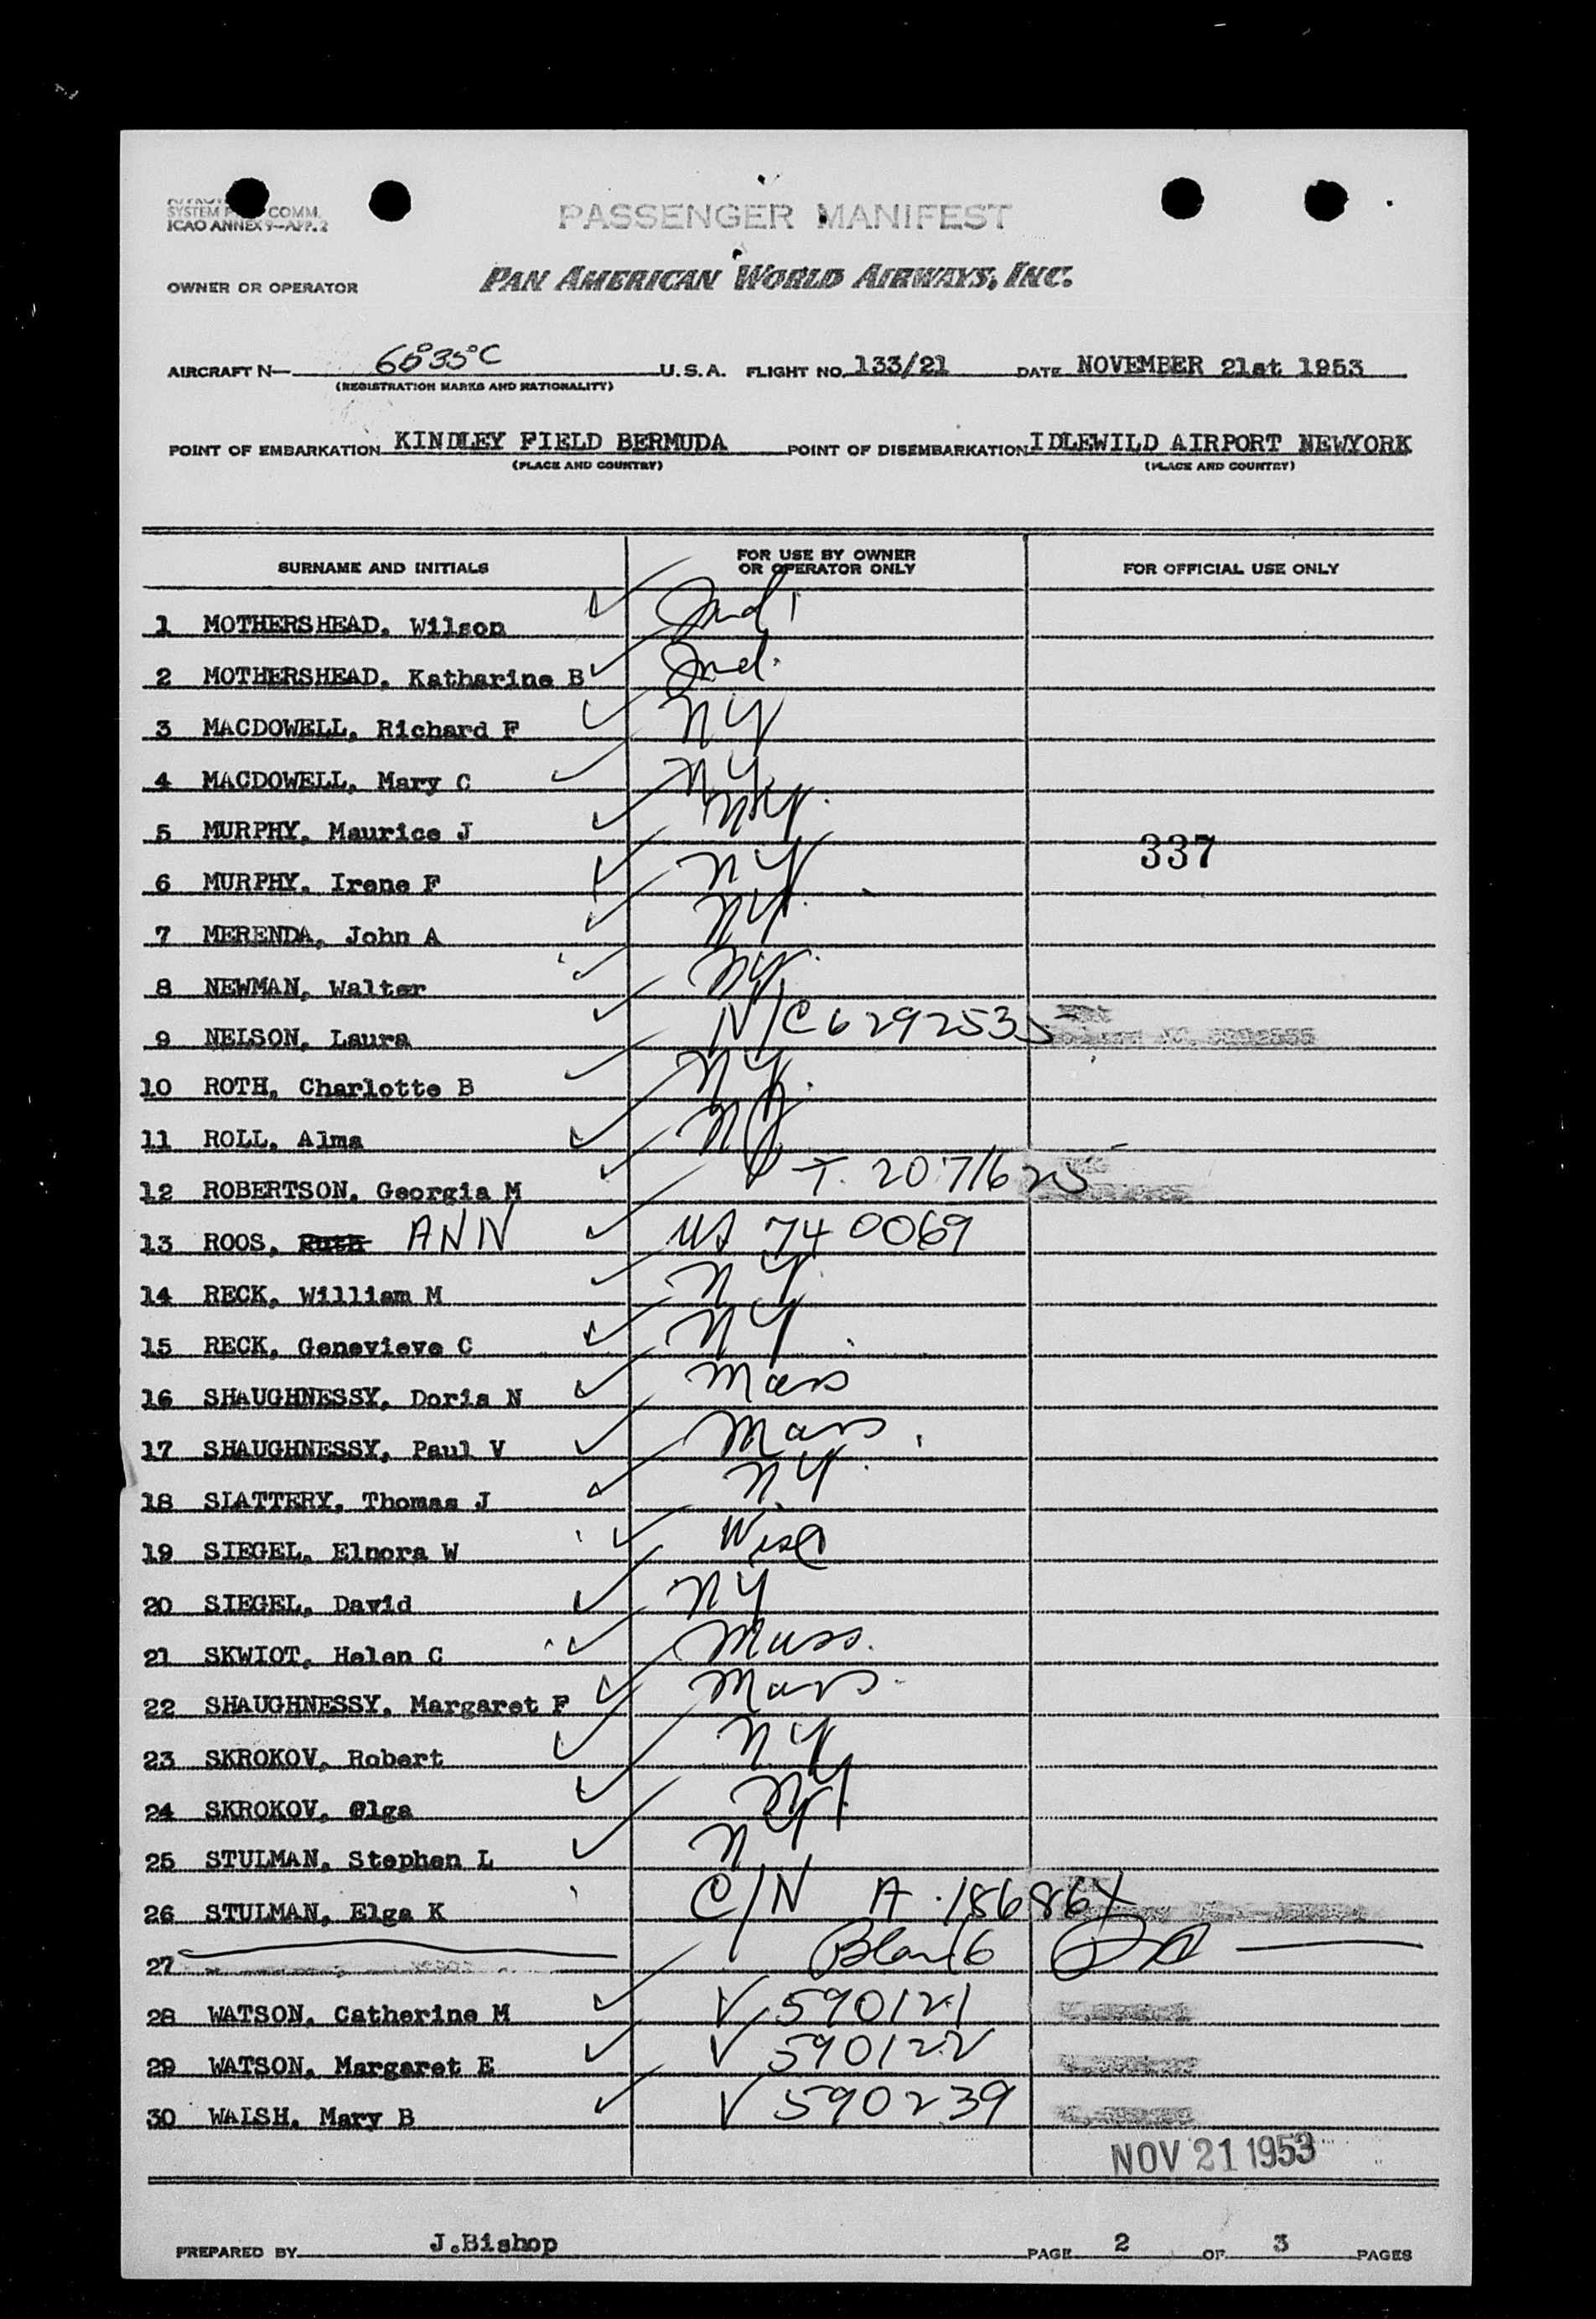 SYSTEM COMM.
ICAO ANNEX 9—APP. 2
PASSENGER MANIFEST
OWNER OR OPERATOR PAN AMERICAN WORLD AIRWAYS, INC.
AIRCRAFT N— 6535C U.S.A. FLIGHT NO. 133/21 DATE NOVEMBER 21st 1953
(REGISTRATION MARKS AND NATIONALITY)
POINT OF EMBARKATION KINDLEY FIELD BERMUDA POINT OF DISEMBARKATION IDLEWILD AIRPORT NEWYORK
(PLACE AND COUNTRY) (PLACE AND COUNTRY)
SURNAME AND INITIALS FOR USE BY OWNER OR OPERATOR ONLY FOR OFFICIAL USE ONLY
1 MOTHERSHEAD, Wilson Ind.
2 MOTHERSHEAD, Katharine B Ind.
3 MACDOWELL, Richard F NY
4 MACDOWELL, Mary C NY.
5 MURPHY, Maurice J NY.
337
6 MURPHY, Irene F NY
7 MERENDA, John A NY.
8 NEWMAN, Walter NY.
9 NELSON, Laura N/C 6292535
10 ROTH, Charlotte B NY.
11 ROLL, Alma NJ
12 ROBERTSON, Georgia M T. 2071625
13 ROOS, Ruth ANN US 740069
14 RECK, William M NY.
15 RECK, Genevieve C NY.
16 SHAUGHNESSY, Doris N Mass
17 SHAUGHNESSY, Paul V Mass.
18 SLATTERY, Thomas J N.Y.
19 SIEGEL, Elnora W Wisc
20 SIEGEL, David NY
21 SKWIOT, Helen C Mass.
22 SHAUGHNESSY, Margaret F Mass.
23 SKROKOV, Robert NY
24 SKROKOV, Olga NY.
25 STULMAN, Stephen L NY
26 STULMAN, Elga K C/N A.
27 Blank
28 WATSON, Catherine M V 590121
29 WATSON, Margaret E V 590122
30 WALSH, Mary B V 590239
NOV 21 1953
PREPARED BY J.Bishop PAGE 2 OF 3 PAGES